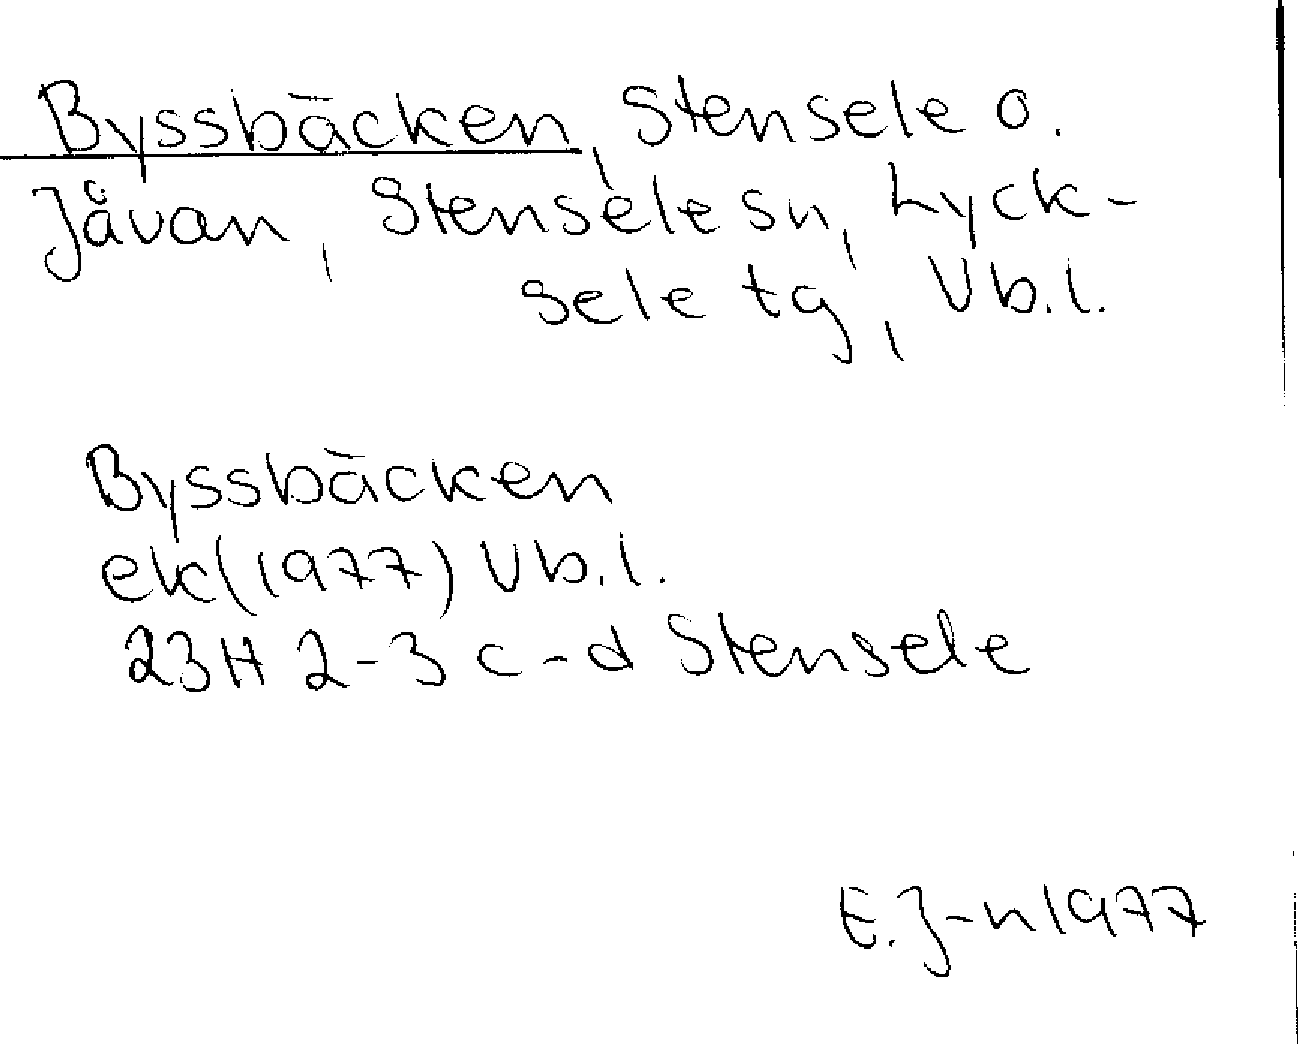 Byssbäcken, Stensele o.
Jåvan, Stensele sn, Lyck-
sele tg, Vb.l.
Byssbäcken
ek(1977) Vb.l.
23H 2-3 c-d Stensele
E.J-n 1977